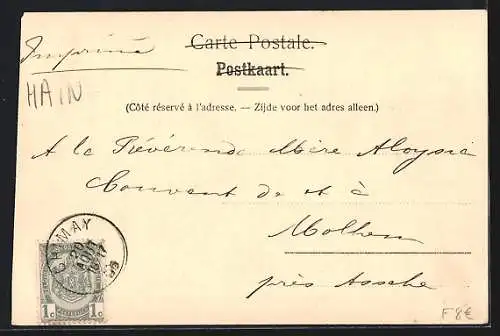 Imprimé
Carte Postale.
Postkaart.
HAIN
(Côté réservé à l'adresse. — Zijde voor het adres alleen.)
A la Révérende Mère Aloysia
Couvent de et à
Molhem
près Assche
CHIMAY
20
AOUT
1c 1c
F8€